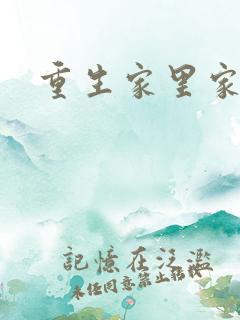 重生家里家
記憶在泛濫
未经同意禁止转载